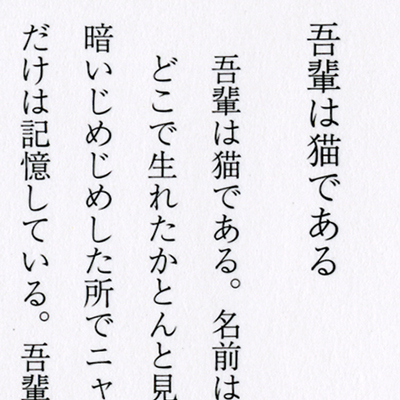 吾輩は猫である
吾輩は猫である。名前は
どこで生れたかとんと見
暗いじめじめした所でニャ
だけは記憶している。吾輩